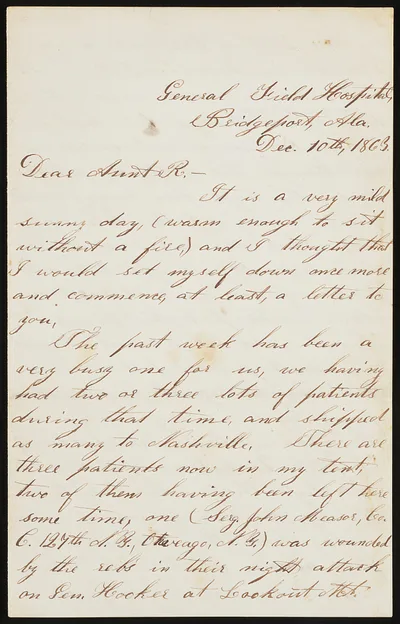 General Field Hospital,
Bridgeport, Ala.
Dec. 10th, 1863.
Dear Aunt R.—
It is a very mild
sunny day, (warm enough to sit
without a fire,) and I thought that
I would set myself down once more
and commence, at least, a letter to
you,
The past week has been a
very busy one for us, we having
had two or three lots of patients
during that time, and shipped
as many to Nashville. There are
three patients now in my tent,
two of them having been left here
some time, one (Serg. John Measor, Co.
C. 127th N. Y., N. Y.) was wounded
by the rebs in their night attack
on Gen. Hooker at Lookout Mt.